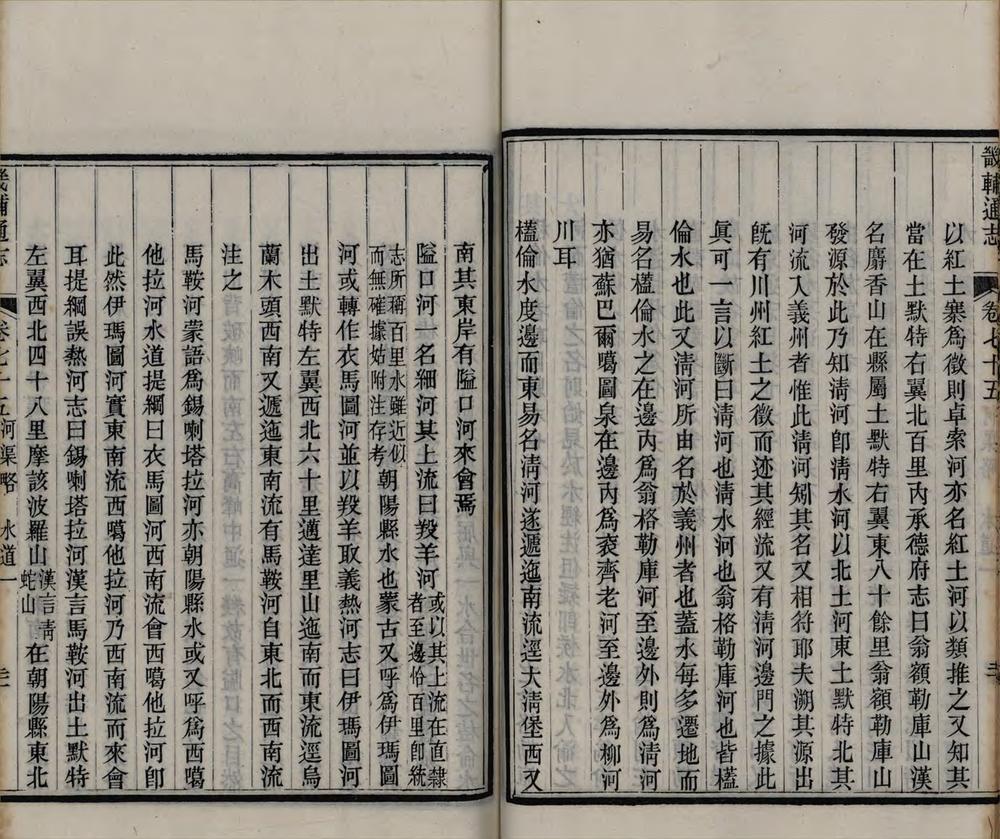 畿輔通志
卷七十五
以紅土寨爲徵則卓索河亦名紅土河以類推之又知其
當在土默特右翼北百里內承德府志曰翁額勒庫山漢
名麝香山在縣屬土默特右翼東八十餘里翁額勒庫山
發源於此乃知淸河卽淸水河以北土河東土默特北其
河流入義州者惟此淸河矧其名又相符耶夫溯其源出
旣有川州紅土之徵而迹其經流又有淸河邊門之據此
眞可一言以斷曰淸河也淸水河也翁格勒庫河也皆㰅
倫水也此又淸河所由名於義州者也蓋水每多遷地而
易名㰅倫水之在邊內爲翁格勒庫河至邊外則爲淸河
亦猶蘇巴爾噶圖泉在邊內爲袤齊老河至邊外爲柳河
川耳
㰅倫水度邊而東易名淸河遂遞迤南流逕大淸堡西又
南其東岸有隘口河來會焉
隘口河一名細河其上流曰羖羊河或以其上流在直隸者至邊恰百里卽統
志所稱百里水雖近似而無確據姑附注存考朝陽縣水也蒙古又呼爲伊瑪圖
河或轉作衣馬圖河並以羖羊取義熱河志曰伊瑪圖河
出土默特左翼西北六十里邁達里山迤南而東流逕烏
蘭木頭西南又遞迤東南流有馬鞍河自東北而西南流
注之
馬鞍河蒙語爲錫喇塔拉河亦朝陽縣水或又呼爲西噶
他拉河水道提綱曰衣馬圖河西南流會西噶他拉河卽
此然伊瑪圖河實東南流西噶他拉河乃西南流而來會
耳提綱誤熱河志曰錫喇塔拉河漢言馬鞍河出土默特
左翼西北四十八里摩該波羅山漢言靑蛇山在朝陽縣東北
畿輔通志
卷七十五
河渠略
水道一